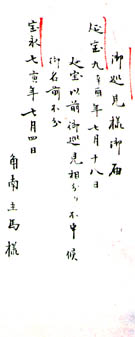 御巡見様御
延宝九辛酉年七月十八日
延宝以前御巡見相分り不申候
御名前不分
宝永七寅年七月四日
角南主馬様